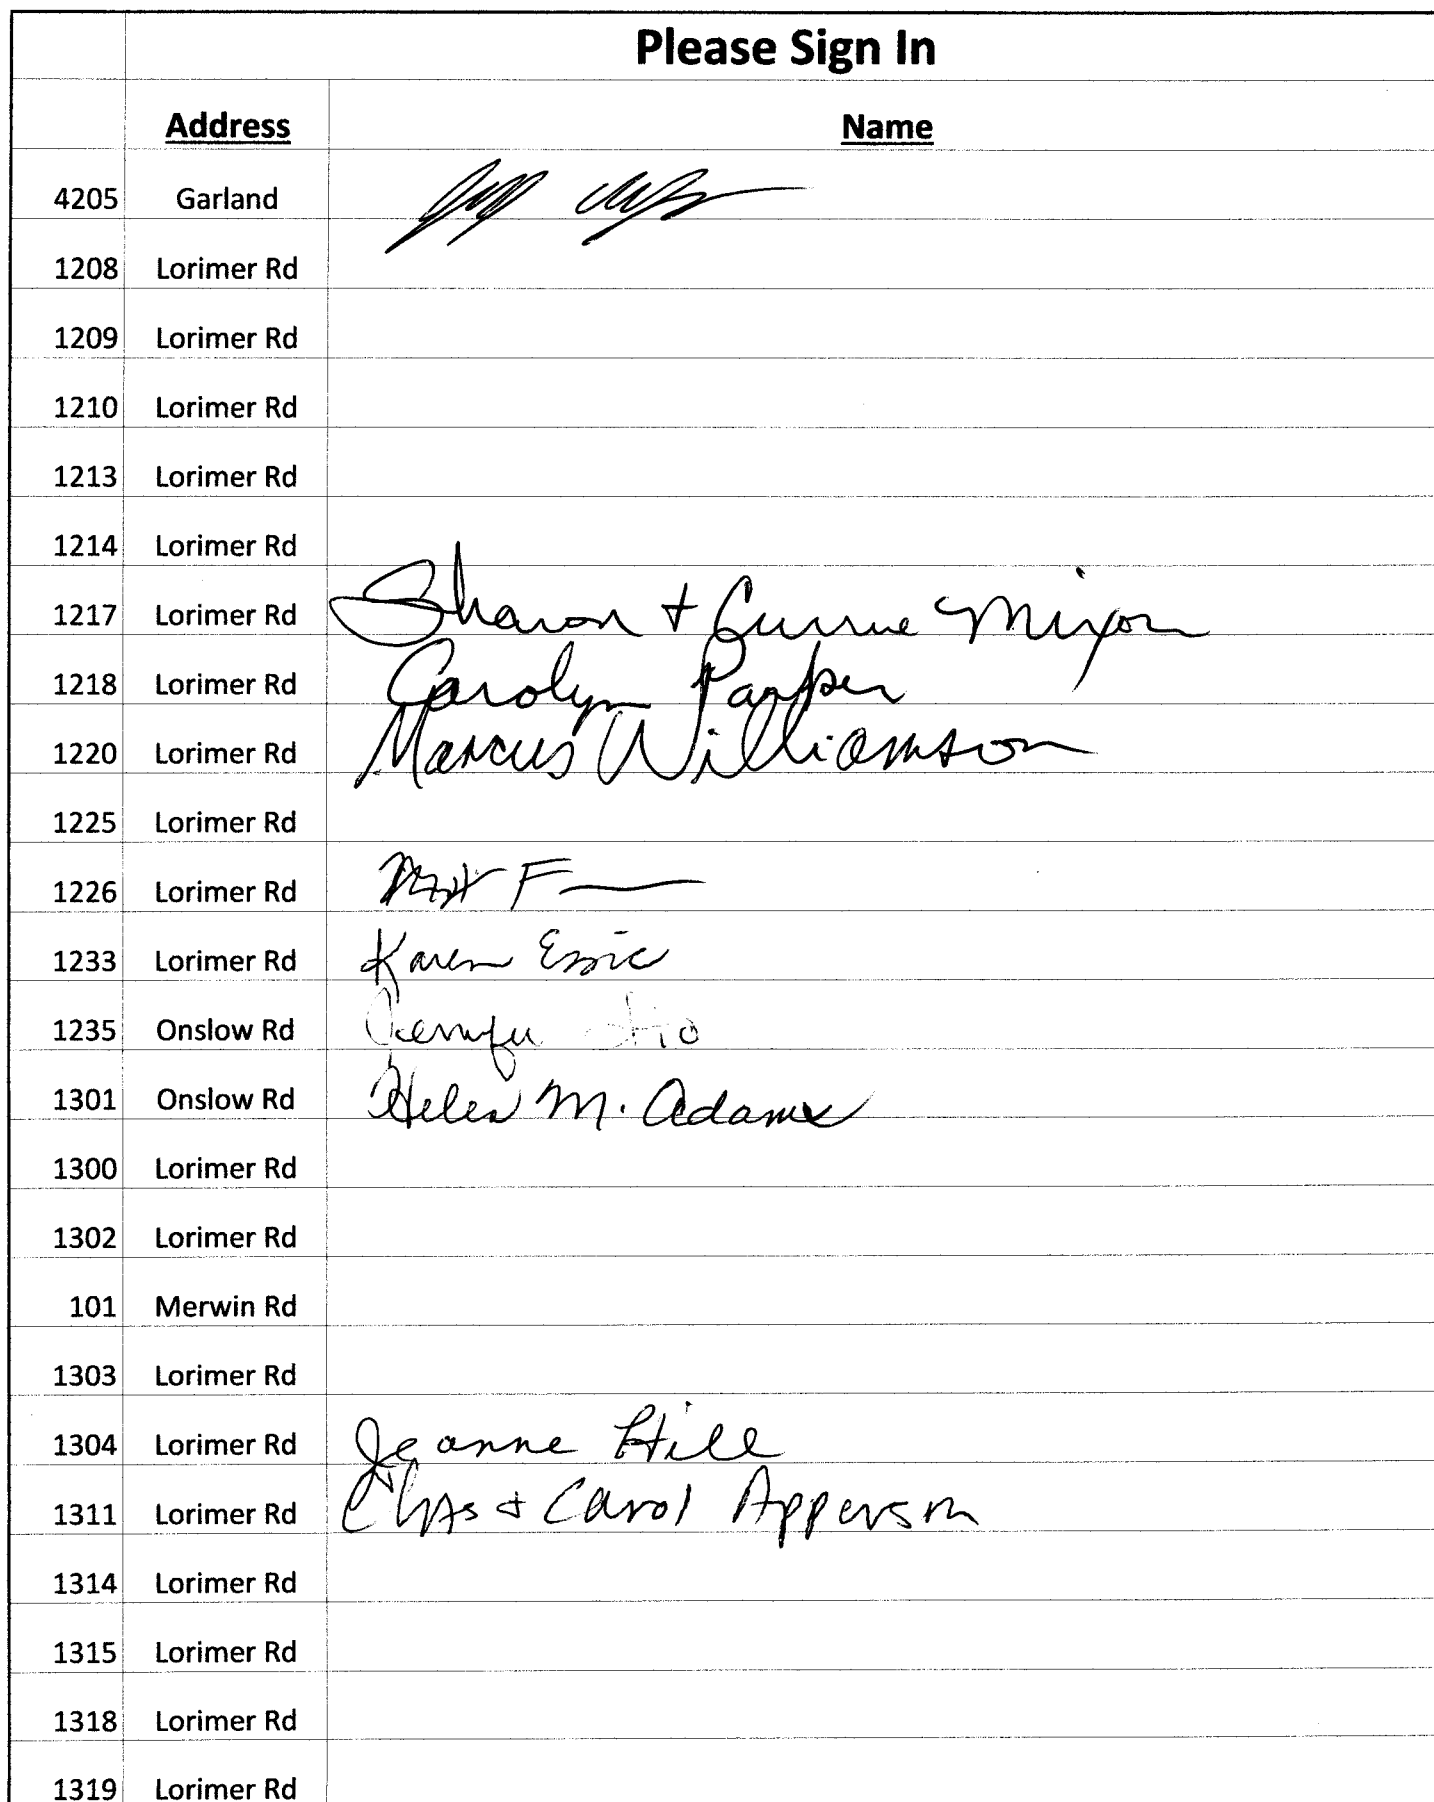 Please Sign In
Address Name
4205 Garland
1208 Lorimer Rd
1209 Lorimer Rd
1210 Lorimer Rd
1213 Lorimer Rd
1214 Lorimer Rd
1217 Lorimer Rd Sharon + Currie Mixon
1218 Lorimer Rd Carolyn Parker
1220 Lorimer Rd Marcus Williamson
1225 Lorimer Rd
1226 Lorimer Rd Matt
1233 Lorimer Rd Karen Essic
1235 Onslow Rd Jennifer
1301 Onslow Rd Helen M. Adams
1300 Lorimer Rd
1302 Lorimer Rd
101 Merwin Rd
1303 Lorimer Rd
1304 Lorimer Rd Jeanne Hill
1311 Lorimer Rd Chas + Carol Apperson
1314 Lorimer Rd
1315 Lorimer Rd
1318 Lorimer Rd
1319 Lorimer Rd